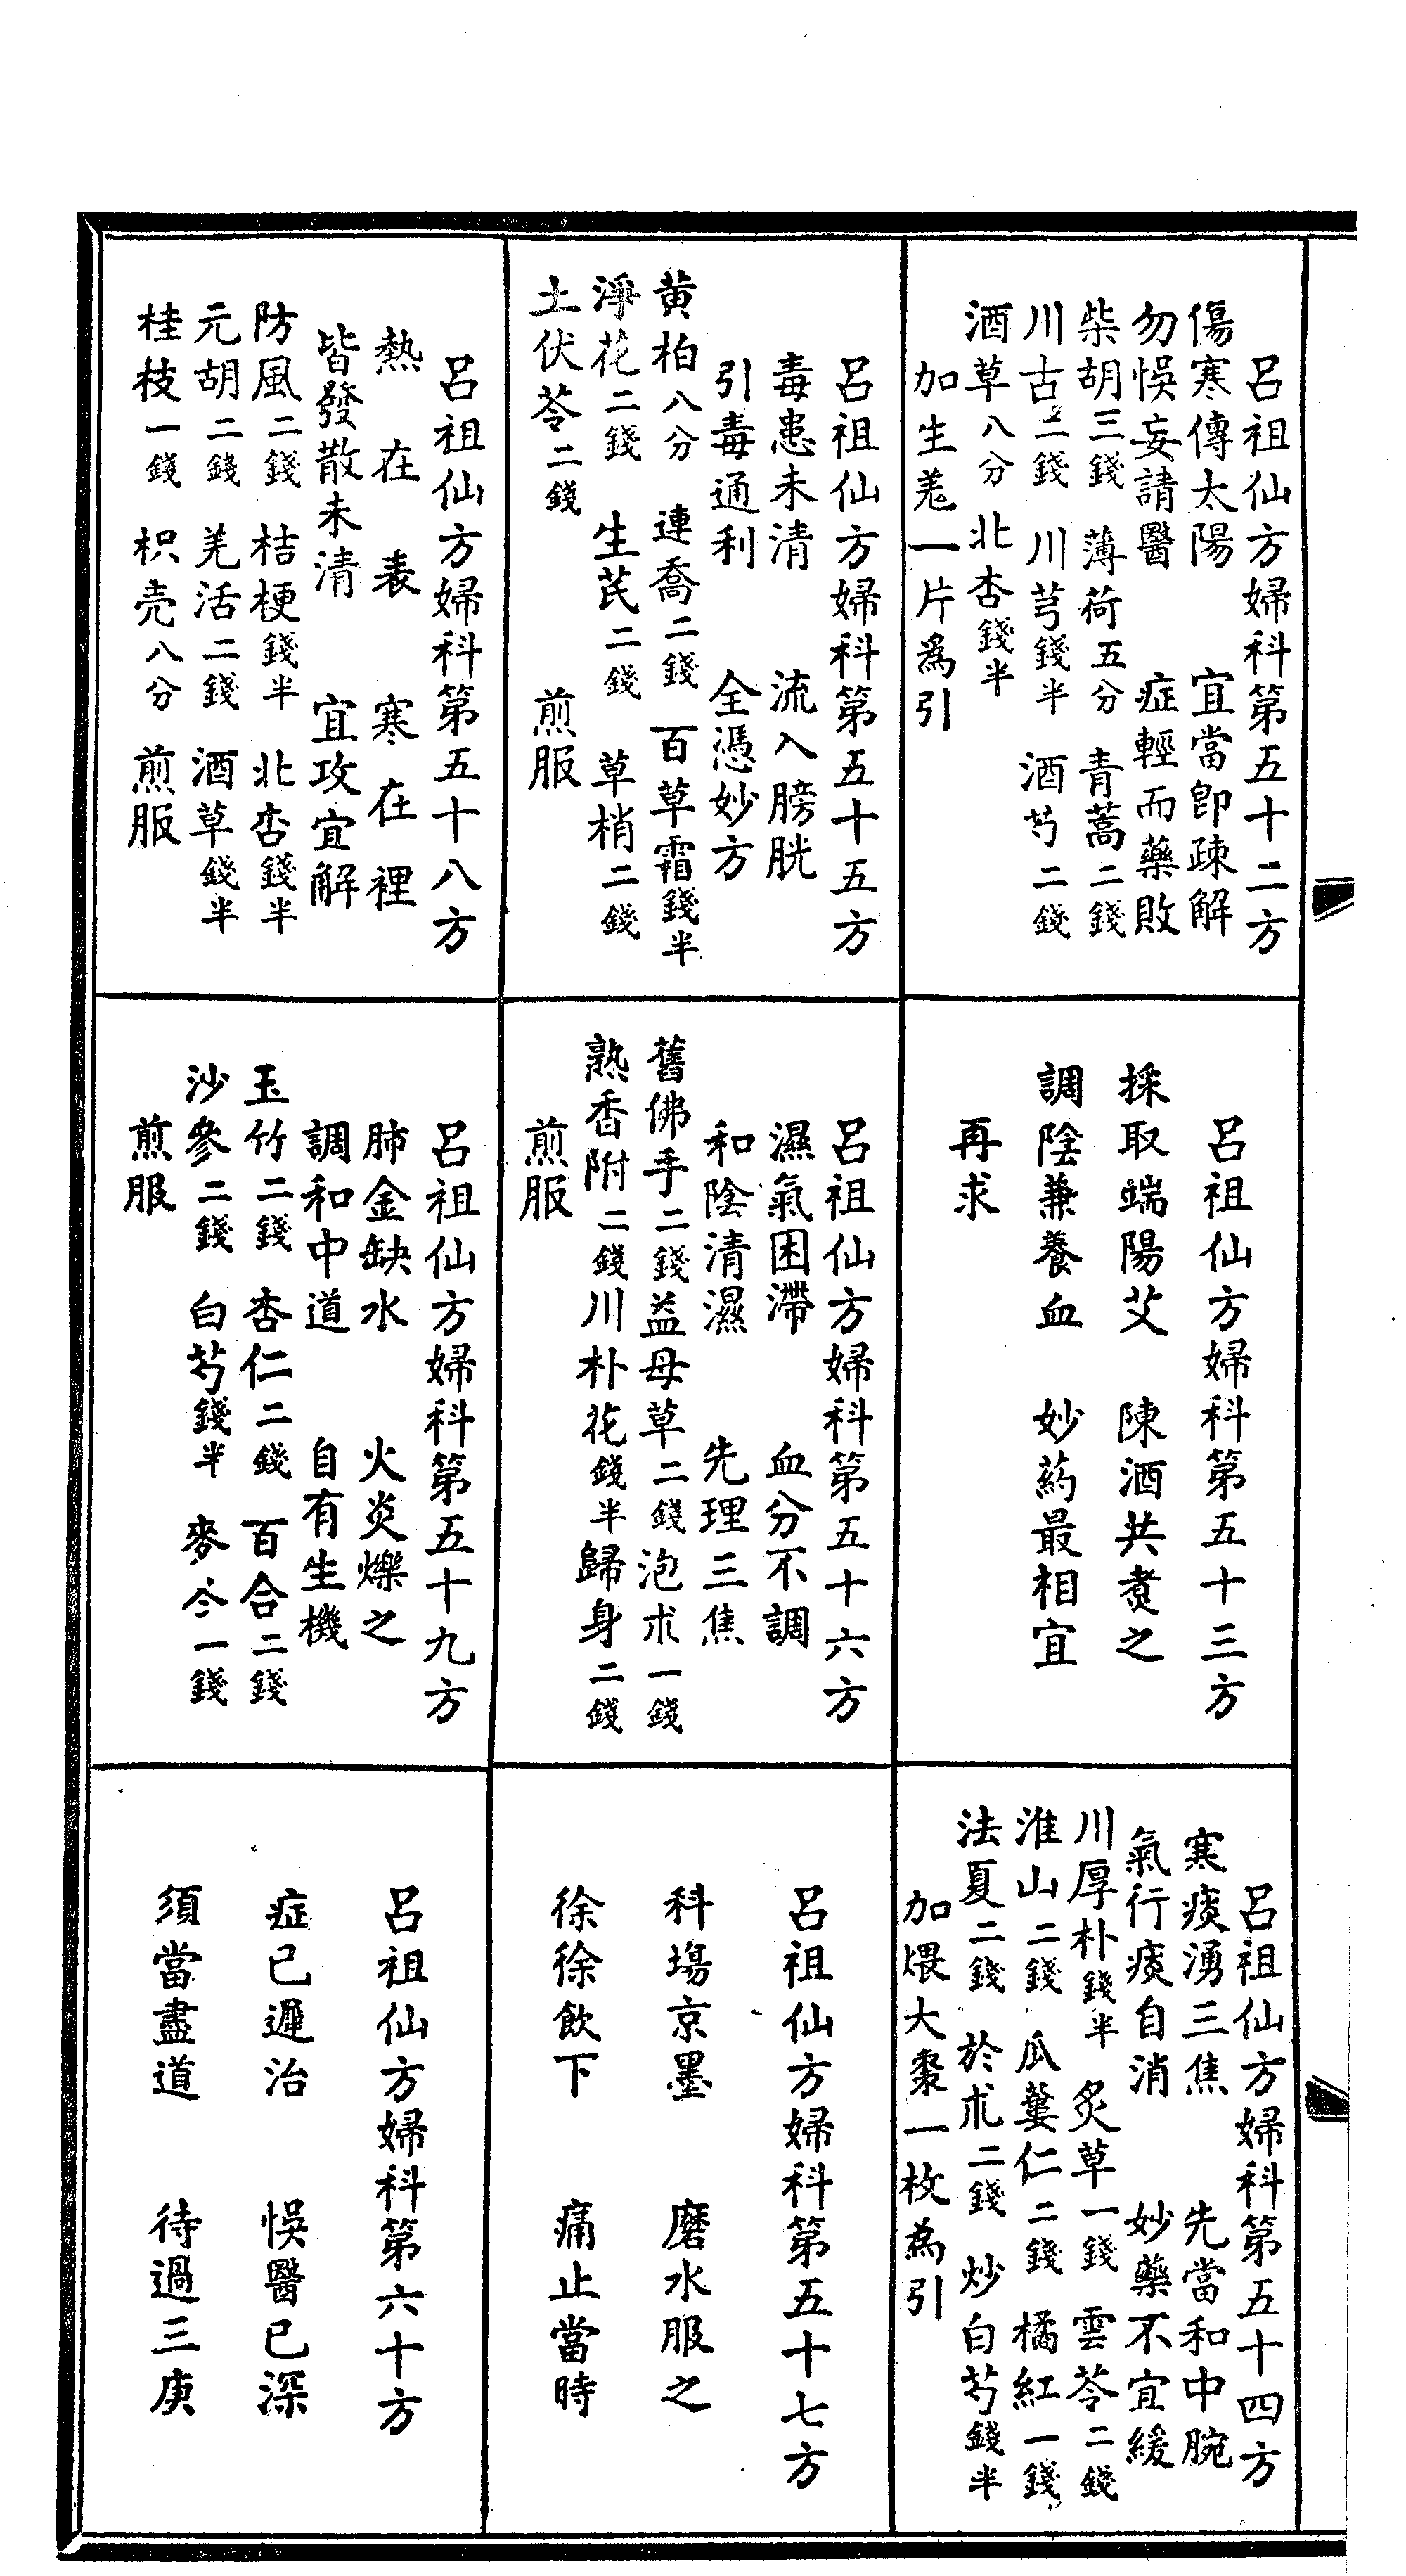 呂祖仙方婦科第五十二方
傷寒傳太陽　宜當即疎解
勿悞妄請醫　症輕而藥敗
柴胡三錢　薄荷五分　青蒿二錢
川古二錢　川芎錢半　酒芍二錢
酒草八分　北杏錢半
加生羗一片為引
呂祖仙方婦科第五十三方
採取端陽艾　陳酒共煑之
調陰兼養血　妙葯最相宜
再求
呂祖仙方婦科第五十四方
寒痰湧三焦　先當和中腕
氣行痰自消　妙藥不宜緩
川厚朴錢半　炙草一錢　雲苓二錢
淮山二錢　瓜蔞仁二錢　橘紅一錢
法夏二錢　於朮二錢　炒白芍錢半
加煨大棗一枚為引
呂祖仙方婦科第五十五方
毒患未清　流入膀胱
引毒通利　全憑妙方
黄柏八分　連喬二錢　百草霜錢半
淨花二錢　生芪二錢　草梢二錢
土伏苓二錢　煎服
呂祖仙方婦科第五十六方
濕氣困滯　血分不調
和陰清濕　先理三焦
舊佛手二錢　益母草二錢　泡朮一錢
熟香附二錢　川朴花錢半　歸身二錢
煎服
呂祖仙方婦科第五十七方
科塲京墨　磨水服之
徐徐飲下　痛止當時
呂祖仙方婦科第五十八方
熱在表　寒在裡
皆發散未清　宜攻宜解
防風二錢　桔梗錢半　北杏錢半
元胡二錢　羌活二錢　酒草錢半
桂枝一錢　枳壳八分　煎服
呂祖仙方婦科第五十九方
肺金缺水　火炎爍之
調和中道　自有生機
玉竹二錢　杏仁二錢　百合二錢
沙參二錢　白芍錢半　麥仒一錢
煎服
呂祖仙方婦科第六十方
症已遲治　悞醫已深
須當盡道　待過三庚